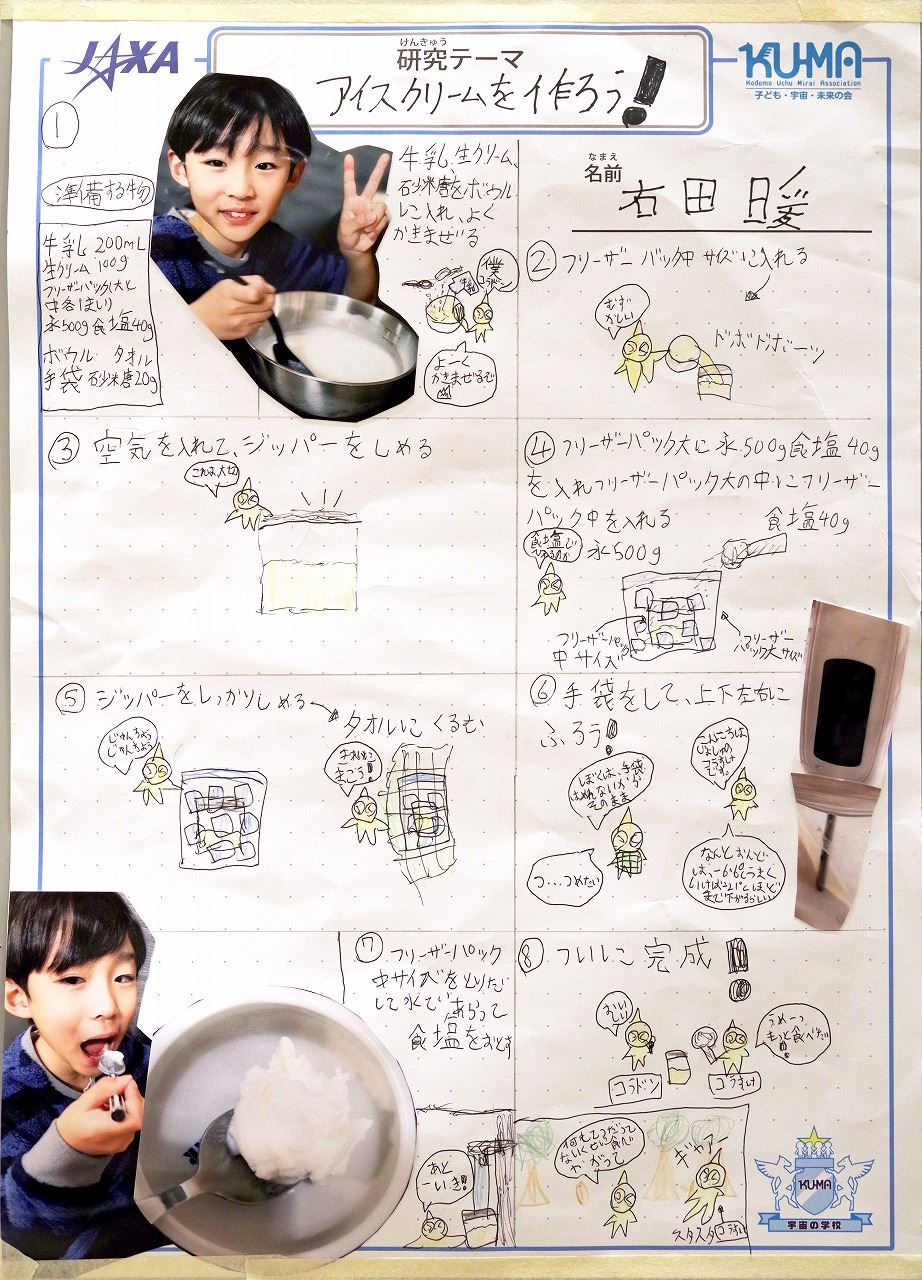 JAXA
けんきゅう
研究テーマ
アイスクリームを作ろう!
KU-MA
Kodomo Uchu Mirai Association
子ども・宇宙・未来の会
なまえ
名前
右田 暖
①
準備する物
牛乳 200mL
生クリーム 100g
フリーザーパック(大と
氷500g 食塩40g
ボウル タオル
手袋 砂糖20g
牛乳、生クリーム、
砂糖をボウル
に入れ、よく
かきまぜる
僕
よーく
かきまぜるで
② フリーザーバック中サイズに入れる
むず
かしい
ドボドボーッ
③ 空気を入れて、ジッパーをしめる
これは、大切
④ フリーザーパック大に氷500g食塩40g
を入れフリーザーパック大の中にフリーザー
パック中を入れる
食塩40g
氷500g
フリーザーパック
中サイズ
フリーザー
パック大サイズ
⑤ ジッパーをしっかりしめる
タオルにくるむ
じゅんちょう
じゅんちょう
⑥ 手袋をして、上下左右に
ふろう!
ぼくは、手袋
はめれないから
そのまま
つ・・・つめたい
こんにちは
じょしゅの
コラすけ
です。
なんとおんど
まで下がるらしい
⑦ フリーザーパック
中サイズをとりだ
して水であらって
食塩をおとす
あと
一いき!!
⑧ ついに完成!!
おいしい
うめーっ
もっと食べたい
コラドン
コラすけ
ギャアー
スタスタ
コラすけ
KU-MA
宇宙の学校